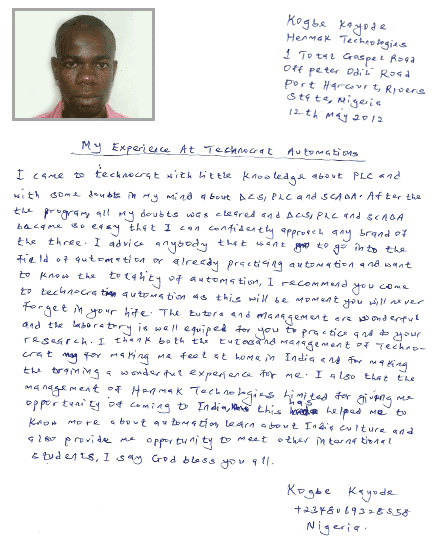 Kogbe Kayode
Hermak Technologies
1 Total Gospel Road
Off peter Odili Road
Port Harcourt, Rivers
State, Nigeria
12th May 2012
My Experience At Technocrat Automations
I came to technocrat with little knowledge about PLC and
with some doubts in my mind about DCS, PLC and SCADA. After the
the program, all my doubts was cleared and DCS, PLC and SCADA
became so easy that I can confidently approach any brand of
the three. I advice anybody that want to go into the
field of automation or already practicing automation and want
to know the totality of automation, I recommend you come
to technocrat automation as this will be moment you will never
forget in your life. The tutors and management are wonderful
and the laboratory is well equiped for you to practice and do your
research. I thank both the tutor and management of Techno-
crat for making me feel at home in India and for making
the training a wonderful experience for me. I also that the
management of Hermak Technologies Limited for giving me
opportunity of coming to India, this has helped me to
know more about automation, learn about India culture and
also provide me opportunity to meet other international
students, I say God bless you all.
Kogbe Kayode
+2348069328558
Nigeria.